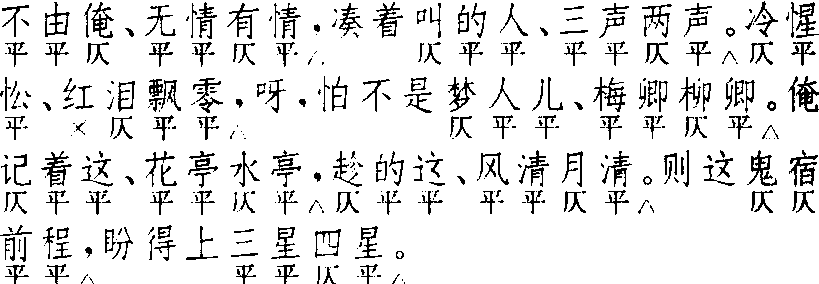 不由俺、无情有情，凑着叫的人、三声两声。冷惺
平平仄 平平仄平△ 仄平平 平平仄平△仄平
忪、红泪飘零，呀，怕不是梦人儿、梅卿柳卿。俺
平 ×仄平平△ 仄平平 平平仄平△仄
记着这、花亭水亭，趁的这、风清月清。则这鬼宿
仄平平 平平仄平△仄平平 平平仄平△ 仄仄
前程，盼得上三星四星。
平平△ 平平仄平△